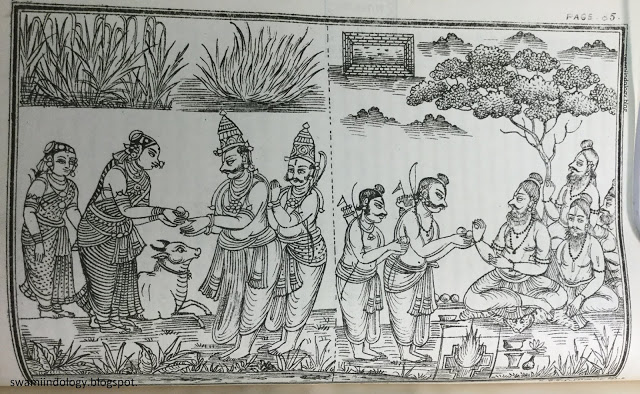 PAGE. 65.
swamiindology.blogspot.